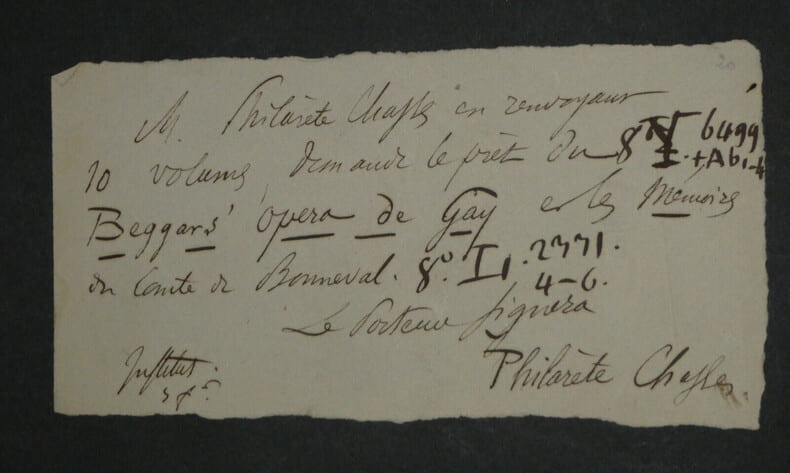 20
M. Philarète Chasles en renvoyant
10 volumes, demande le prêt du 8° 6499
Beggars' opera de Gay et les Mémoires
du Comte de Bonneval. 8°. I1. 2771.
4-6.
Le Porteur signera
Institut.
Philarète Chasles.